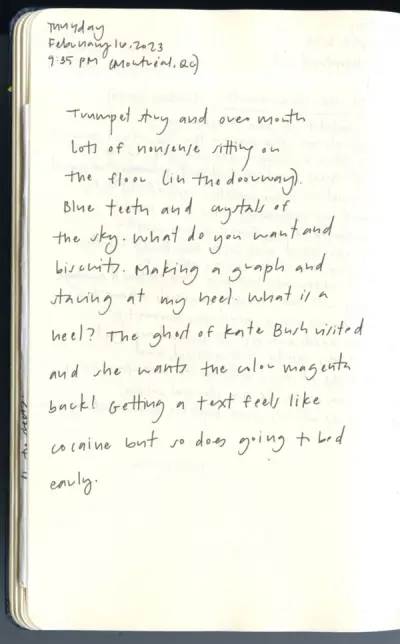 Thursday
February 16, 2023
9:35 PM (Montréal, QC)
Trumpet stuy and over mouth
Lots of nonsense sitting on
the floor (in the doorway).
Blue teeth and crystals of
the sky. What do you want and
biscuits. Making a graph and
staring at my heel. What is a
heel? The ghost of Kate Bush visited
and she wants the color magenta
back! Getting a text feels like
cocaine but so does going to bed
early.